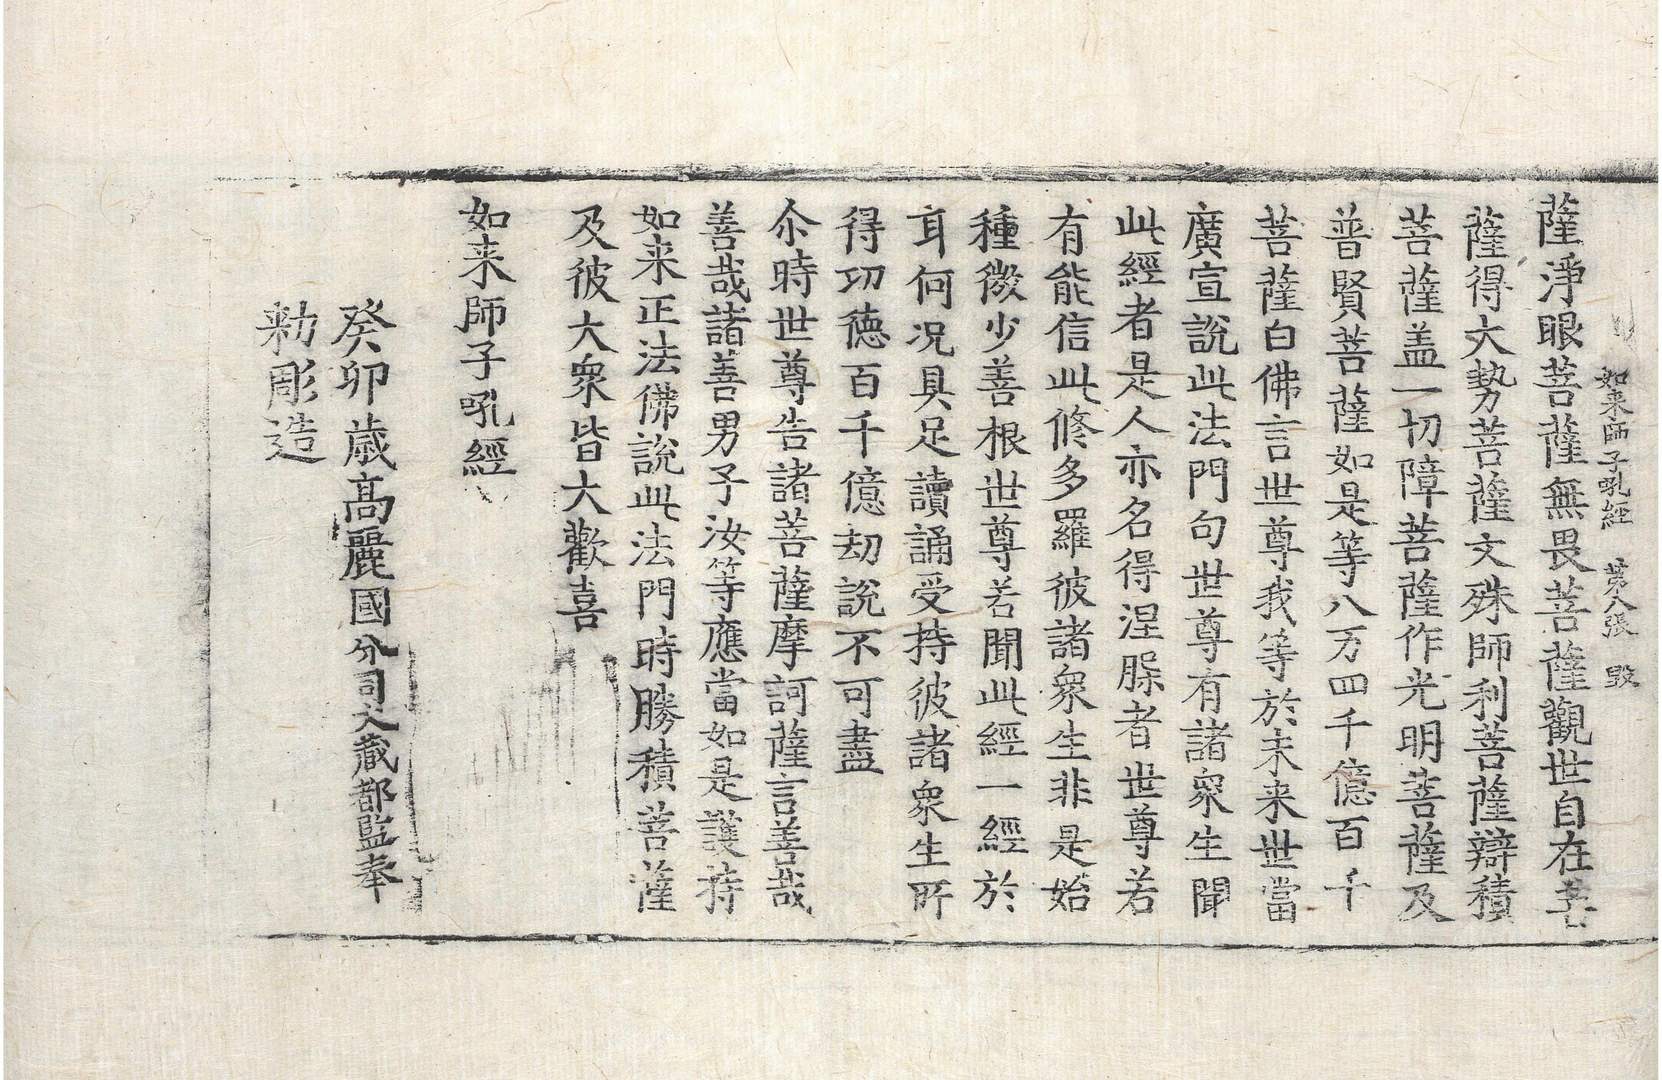 如来師子吼經 第八張 毀
薩淨眼菩薩無畏菩薩觀世自在菩
薩得大勢菩薩文殊師利菩薩辯積
菩薩盖一切障菩薩作光明菩薩及
普賢菩薩如是等八万四千億百千
菩薩白佛言世尊我等於未来世當
廣宣說此法門句世尊有諸衆生聞
此經者是人亦名得涅槃者世尊若
有能信此修多羅彼諸衆生非是始
種微少善根世尊若聞此經一經於
耳何况具足讀誦受持彼諸衆生所
得功德百千億劫說不可盡
尒時世尊告諸菩薩摩訶薩言善哉
善哉諸善男子汝等應當如是護持
如来正法佛說此法門時勝積菩薩
及彼大衆皆大歡喜
如来師子吼經
癸卯歲高麗國分司大藏都監奉
勑彫造